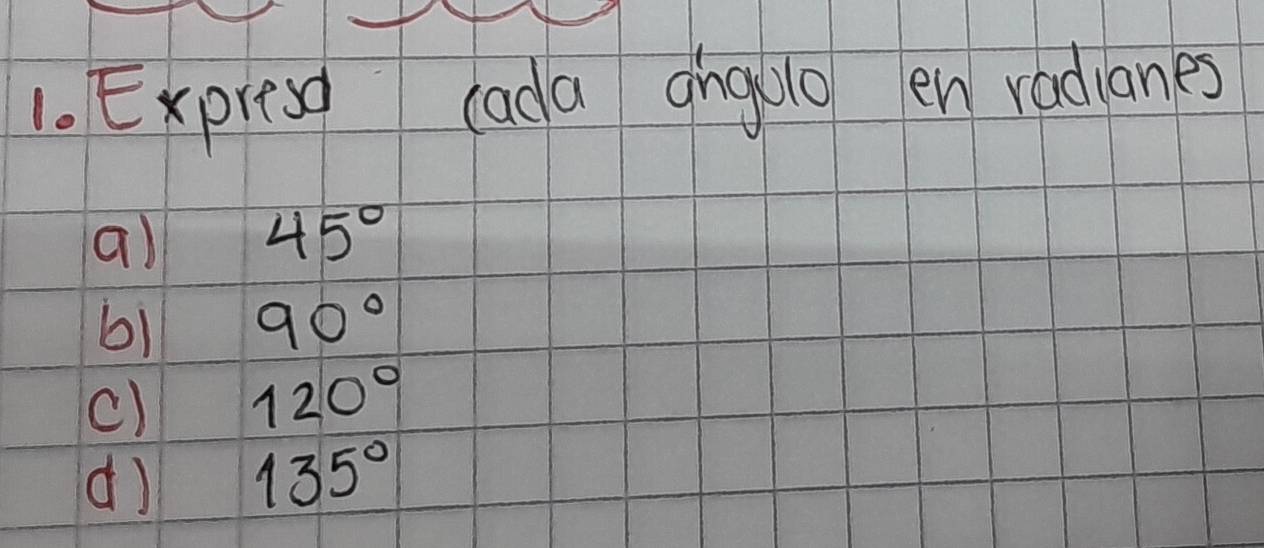 1. Expresa cada ángulo en radianes
a) 45°
b) 90°
c) 120°
d) 135°